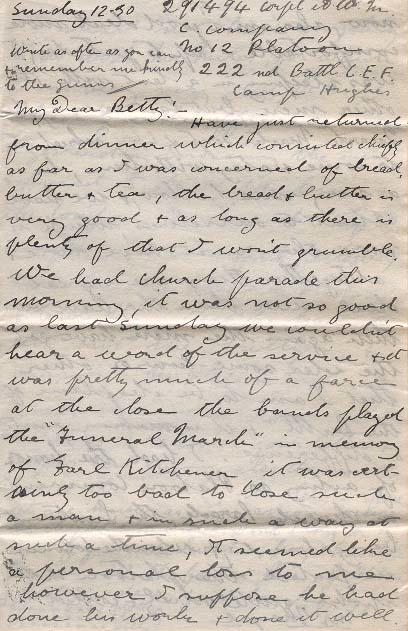 Sunday 12-30
291494 Corpl
C. Company
No 12 Platoon
222 nd Battl C.E.F.
Camp Hughes
Write as often as you can
& remember me kindly
to the
My Dear Betty!-
Have just returned
from dinner which consisted chiefly
as far as I was concerned of bread,
butter & tea, the bread & butter is
very good & as long as there is
plenty of that I won't grumble.
We had church parade this
morning, it was not so good
as last Sunday we couldn't
hear a word of the service & it
was pretty much of a farce
at the close the bands played
the "Funeral March" in memory
of Earl Kitchener it was cert-
ainly too bad to lose such
a man & in such a way at
such a time, It seemed like
a personal loss to me
however I suppose he had
done his work & done it well